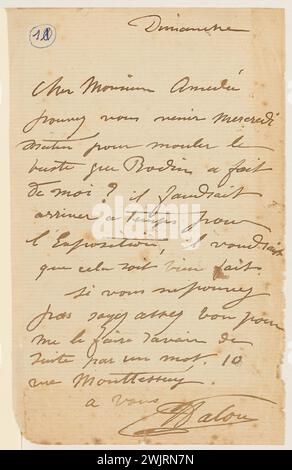 18
Dimanche
Cher Monsieur Amédé
pouvez vous venir mercredi
matin pour mouler le
buste que Rodin a fait
de moi ? il faudrait
arriver a temps pour
l'Exposition, il voudrait
que cela soit bien fait.
si vous ne pouvez
pas soyez assez bon pour
me le faire savoir de
suite par un mot. 10
rue Monttessuy
a vous
Dalou
alamy
Image ID: 2WJRN7N
www.alamy.com